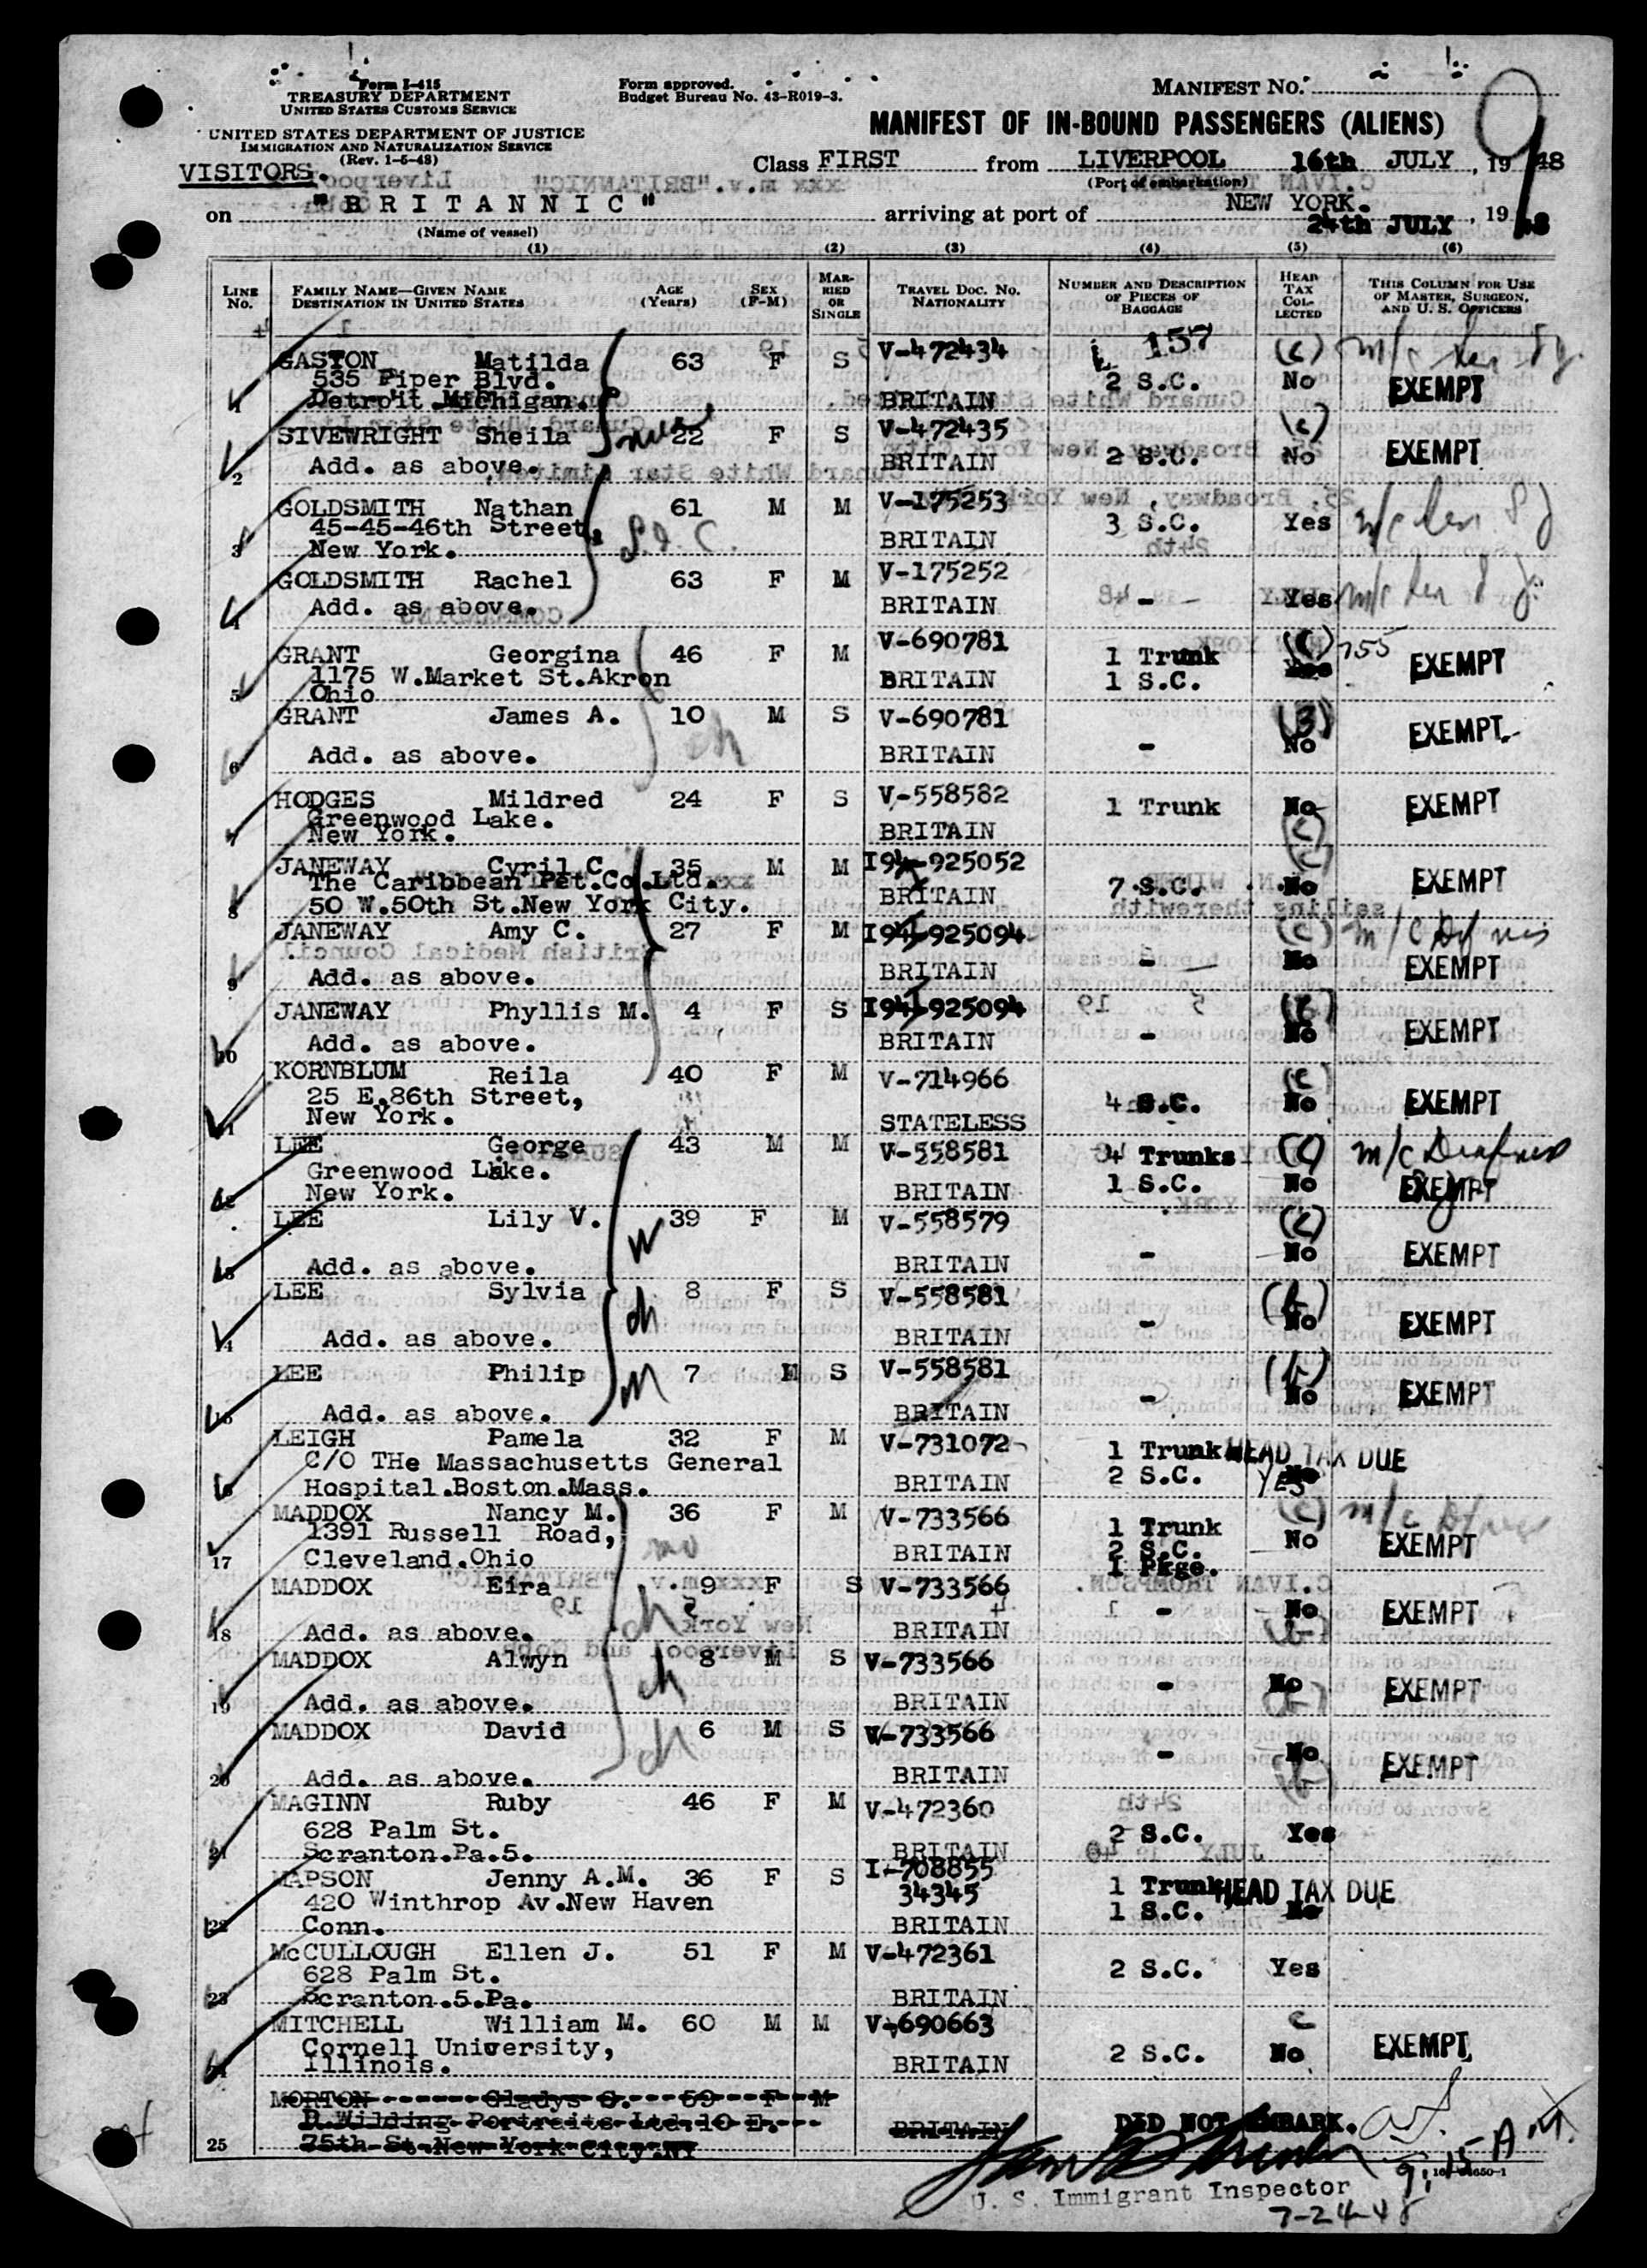 Form I-415
TREASURY DEPARTMENT
UNITED STATES CUSTOMS SERVICE
UNITED STATES DEPARTMENT OF JUSTICE
IMMIGRATION AND NATURALIZATION SERVICE
(Rev. 1-5-48)
VISITORS.
Form approved.
Budget Bureau No. 43-R019-3.
MANIFEST NO.
9
MANIFEST OF IN-BOUND PASSENGERS (ALIENS)
Class FIRST from LIVERPOOL 16th JULY, 1948
(Port of embarkation)
on "BRITANNIC" arriving at port of NEW YORK.
24th JULY, 1948
(Name of vessel)
(1) (2) (3) (4) (5) (6)
LINE NO. FAMILY NAME—GIVEN NAME DESTINATION IN UNITED STATES AGE (Years) SEX (F-M) MARRIED OR SINGLE TRAVEL DOC. NO. NATIONALITY NUMBER AND DESCRIPTION OF PIECES OF BAGGAGE HEAD TAX COLLECTED THIS COLUMN FOR USE OF MASTER, SURGEON, AND U. S. OFFICERS
157
GASTON Matilda 63 F S V-472434 (c)
535 Piper Blvd. 2 S.C. No EXEMPT
1 Detroit Michigan. BRITAIN
SIVEWRIGHT Sheila 22 F S V-472435 (c)
2 Add. as above. BRITAIN 2 S.C. No EXEMPT
GOLDSMITH Nathan 61 M M V-175253
45-45-46th Street, 3 S.C. Yes
3 New York. BRITAIN
GOLDSMITH Rachel 63 F M V-175252
4 Add. as above. BRITAIN - Yes
GRANT Georgina 46 F M V-690781 (c) 755
1175 W.Market St.Akron 1 Trunk Yes EXEMPT
5 Ohio BRITAIN 1 S.C.
GRANT James A. 10 M S V-690781 (3)
6 Add. as above. ch BRITAIN - No EXEMPT
HODGES Mildred 24 F S V-558582
Greenwood Lake. 1 Trunk No EXEMPT
7 New York. BRITAIN (c)
JANEWAY Cyril C. 35 M M I94-925052 (c)
The Caribbean Pet.Co.Ltd. 7 S.C. No EXEMPT
8 50 W.50th St.New York City. BRITAIN
JANEWAY Amy C. 27 F M I94-925094 (c)
9 Add. as above. BRITAIN - No EXEMPT
JANEWAY Phyllis M. 4 F S I94-925094
10 Add. as above. BRITAIN - No EXEMPT
KORNBLUM Reila 40 F M V-714966 (c)
25 E.86th Street, 4 S.C. No EXEMPT
11 New York. STATELESS
LEE George 43 M M V-558581 (c)
Greenwood Lake. 4 Trunks
12 New York. BRITAIN 1 S.C. No EXEMPT
LEE Lily V. 39 F M V-558579 (c)
13 Add. as above. W BRITAIN - No EXEMPT
LEE Sylvia 8 F S V-558581 (b)
14 Add. as above. ch BRITAIN - No EXEMPT
LEE Philip 7 M S V-558581 (b)
15 Add. as above. BRITAIN - No EXEMPT
LEIGH Pamela 32 F M V-731072
C/O THe Massachusetts General 1 Trunk HEAD TAX DUE
16 Hospital.Boston.Mass. BRITAIN 2 S.C. No YES
MADDOX Nancy M. 36 F M V-733566 (c)
1391 Russell Road, 1 Trunk
17 Cleveland.Ohio BRITAIN 2 S.C. No EXEMPT
1 Pkge.
MADDOX Eira 9 F S V-733566
18 Add. as above. ch BRITAIN - No EXEMPT
MADDOX Alwyn 8 M S V-733566
19 Add. as above. ch BRITAIN - No EXEMPT
MADDOX David 6 M S V-733566
20 Add. as above. ch BRITAIN - No EXEMPT
MAGINN Ruby 46 F M V-472360
628 Palm St. 2 S.C. Yes
21 Scranton.Pa.5. BRITAIN
MAPSON Jenny A.M. 36 F S I-708855
420 Winthrop Av.New Haven 34345 1 Trunk HEAD TAX DUE
22 Conn. BRITAIN 1 S.C. No
McCULLOUGH Ellen J. 51 F M V-472361
628 Palm St. 2 S.C. Yes
23 Scranton.5.Pa. BRITAIN
MITCHELL William M. 60 M M V-690663 c
Cornell University, 2 S.C. No EXEMPT
24 Illinois. BRITAIN
MORTON Gladys G. 59 F M
D.Wilding Portraits Ltd.10 E. BRITAIN DID NOT EMBARK.
25 75th St.New York City.NY
9:15 A.M.
U. S. Immigrant Inspector
7-24-48